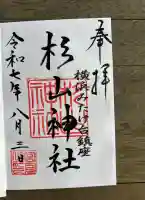 奉拝
横浜みたけ台鎮座
杉山神社
令和七年八月三日